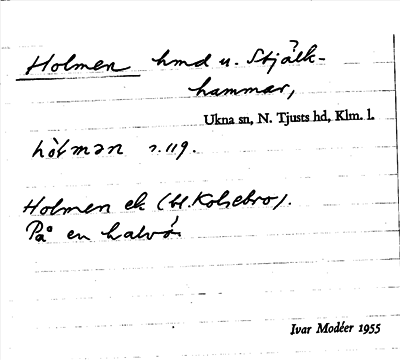 Holmen hmd u. Stjälk-
hammar,
Ukna sn, N. Tjusts hd, Klm. l.
hòłmən s. 119.
Holmen ek (bl. Kolsebro).
På en halvö.
Ivar Modéer 1955